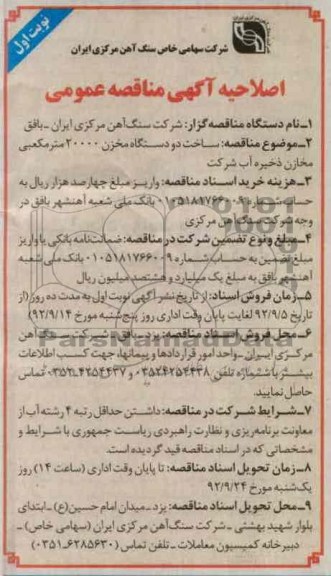 نوبت اول
شرکت سهامی خاص سنگ آهن مرکزی ایران
اصلاحیه آگهی مناقصه عمومی
۱ـ نام دستگاه مناقصه‌گزار: شرکت سنگ‌آهن مرکزی ایران ـ بافق
۲ـ موضوع مناقصه: ساخت دو دستگاه مخزن ۲۰۰۰۰ مترمکعبی
مخازن ذخیره آب شرکت
۳ـ هزینه خرید اسناد مناقصه: واریز مبلغ چهارصد هزار ریال به
حساب شماره ۰۱۰۵۱۸۱۷۶۶۰۰۹ بانک ملی شعبه آهنشهر بافق در
وجه شرکت سنگ آهن مرکزی
۴ـ مبلغ و نوع تضمین شرکت در مناقصه: ضمانت‌نامه بانکی یا واریز
مبلغ تضمین به حساب شماره ۰۱۰۵۱۸۱۷۶۶۰۰۹ بانک ملی شعبه
آهنشهر بافق به مبلغ یک میلیارد و هشتصد میلیون ریال
۵ـ زمان فروش اسناد: از تاریخ نشر آگهی نوبت اول به مدت ده روز (از
تاریخ ۹۲/۹/۵ لغایت پایان وقت اداری روز پنج‌شنبه مورخ ۹۲/۹/۱۴)
۶ـ محل فروش اسناد مناقصه: یزد ـ بافق ـ شرکت سنگ آهن
مرکزی ایران ـ واحد امور قراردادها و پیمانها، جهت کسب اطلاعات
بیشتر با شماره تلفن ۰۳۵۲۴۲۵۴۴۳۸ و ۰۳۵۲۴۲۵۴۴۳۷ تماس
حاصل نمایید.
۷ـ شرایط شرکت در مناقصه: داشتن حداقل رتبه ۴ رشته آب از
معاونت برنامه‌ریزی و نظارت راهبردی ریاست جمهوری با شرایط و
مشخصاتی که در اسناد مناقصه قید گردیده است.
۸ـ زمان تحویل اسناد مناقصه: تا پایان وقت اداری (ساعت ۱۴) روز
یک‌شنبه مورخ ۹۲/۹/۲۴
۹ـ محل تحویل اسناد مناقصه: یزد ـ میدان امام حسین(ع) ـ ابتدای
بلوار شهید بهشتی ـ شرکت سنگ‌آهن مرکزی ایران (سهامی خاص) ـ
دبیرخانه کمیسیون معاملات ـ تلفن تماس (۶۲۸۵۶۳۰ـ۰۳۵۱)
ParsNamadData